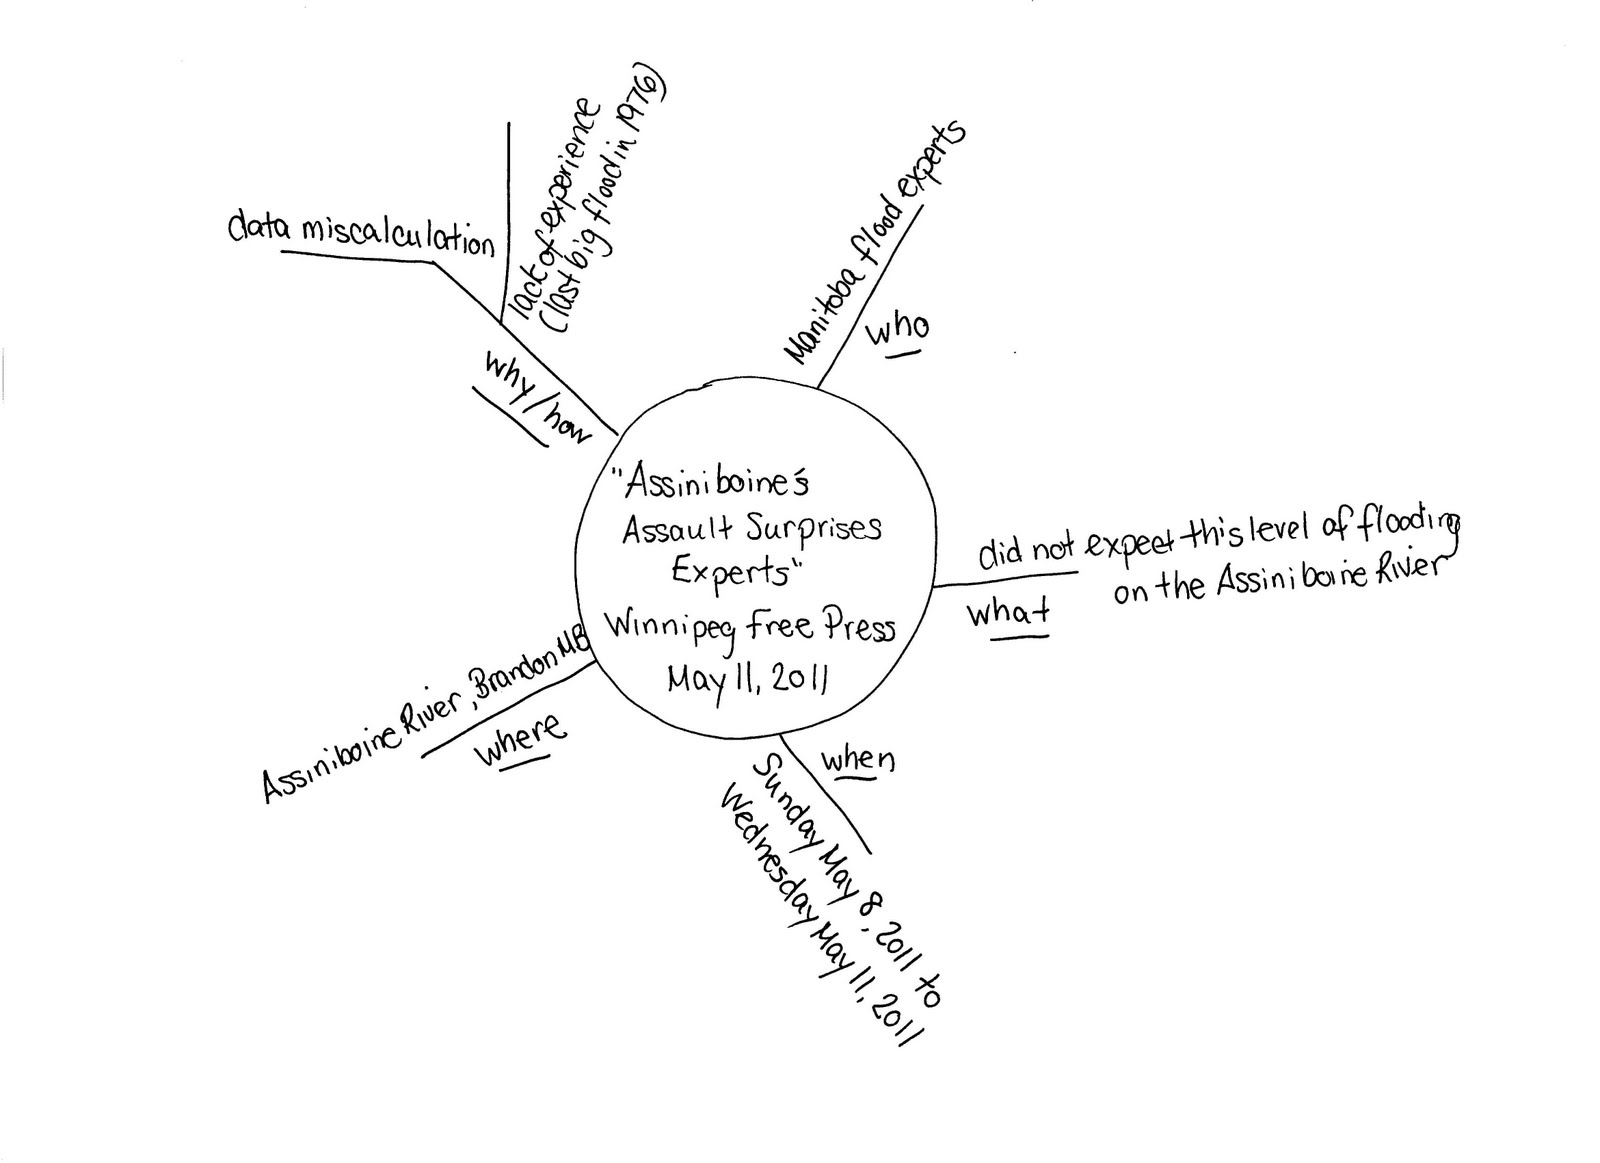 "Assiniboine's
Assault Surprises
Experts"
Winnipeg Free Press
May 11, 2011
who
Manitoba flood experts
what
did not expect this level of flooding
on the Assiniboine River
when
Sunday May 8, 2011 to
Wednesday May 11, 2011
where
Assiniboine River, Brandon MB
why/how
data miscalculation
lack of experience
(last big flood in 1976)